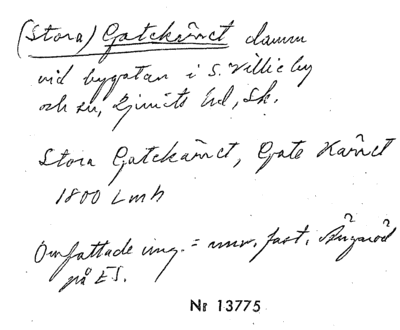 (Stora) Gatekärret damm
vid bygatan i S. Villie by
och sn, Ljunits hd, Sk.
Stora Gatekärret, Gate Kärret
1800 Lmh
Omfattade ung. = nuv. fast. Ängaröd
på ES.
Nr 13775